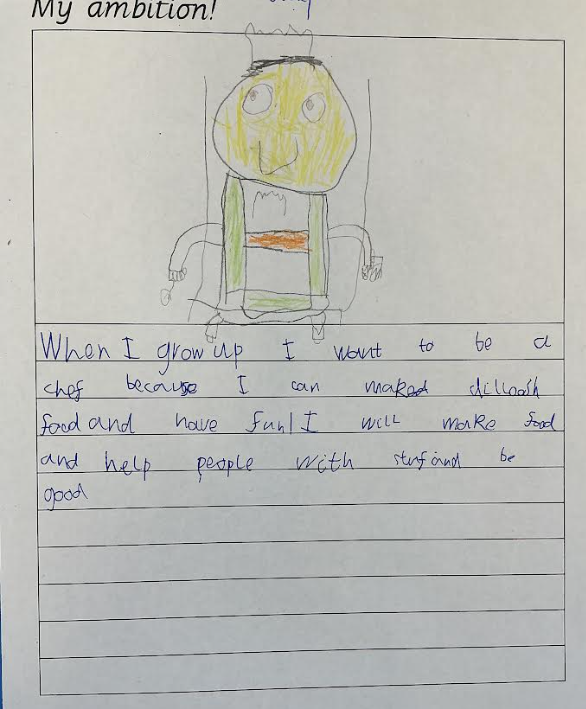 My ambition!
When I grow up I want to be a
chef because I can maked dilloosh
food and have fun! I will make food
and help people with stuf and be
good